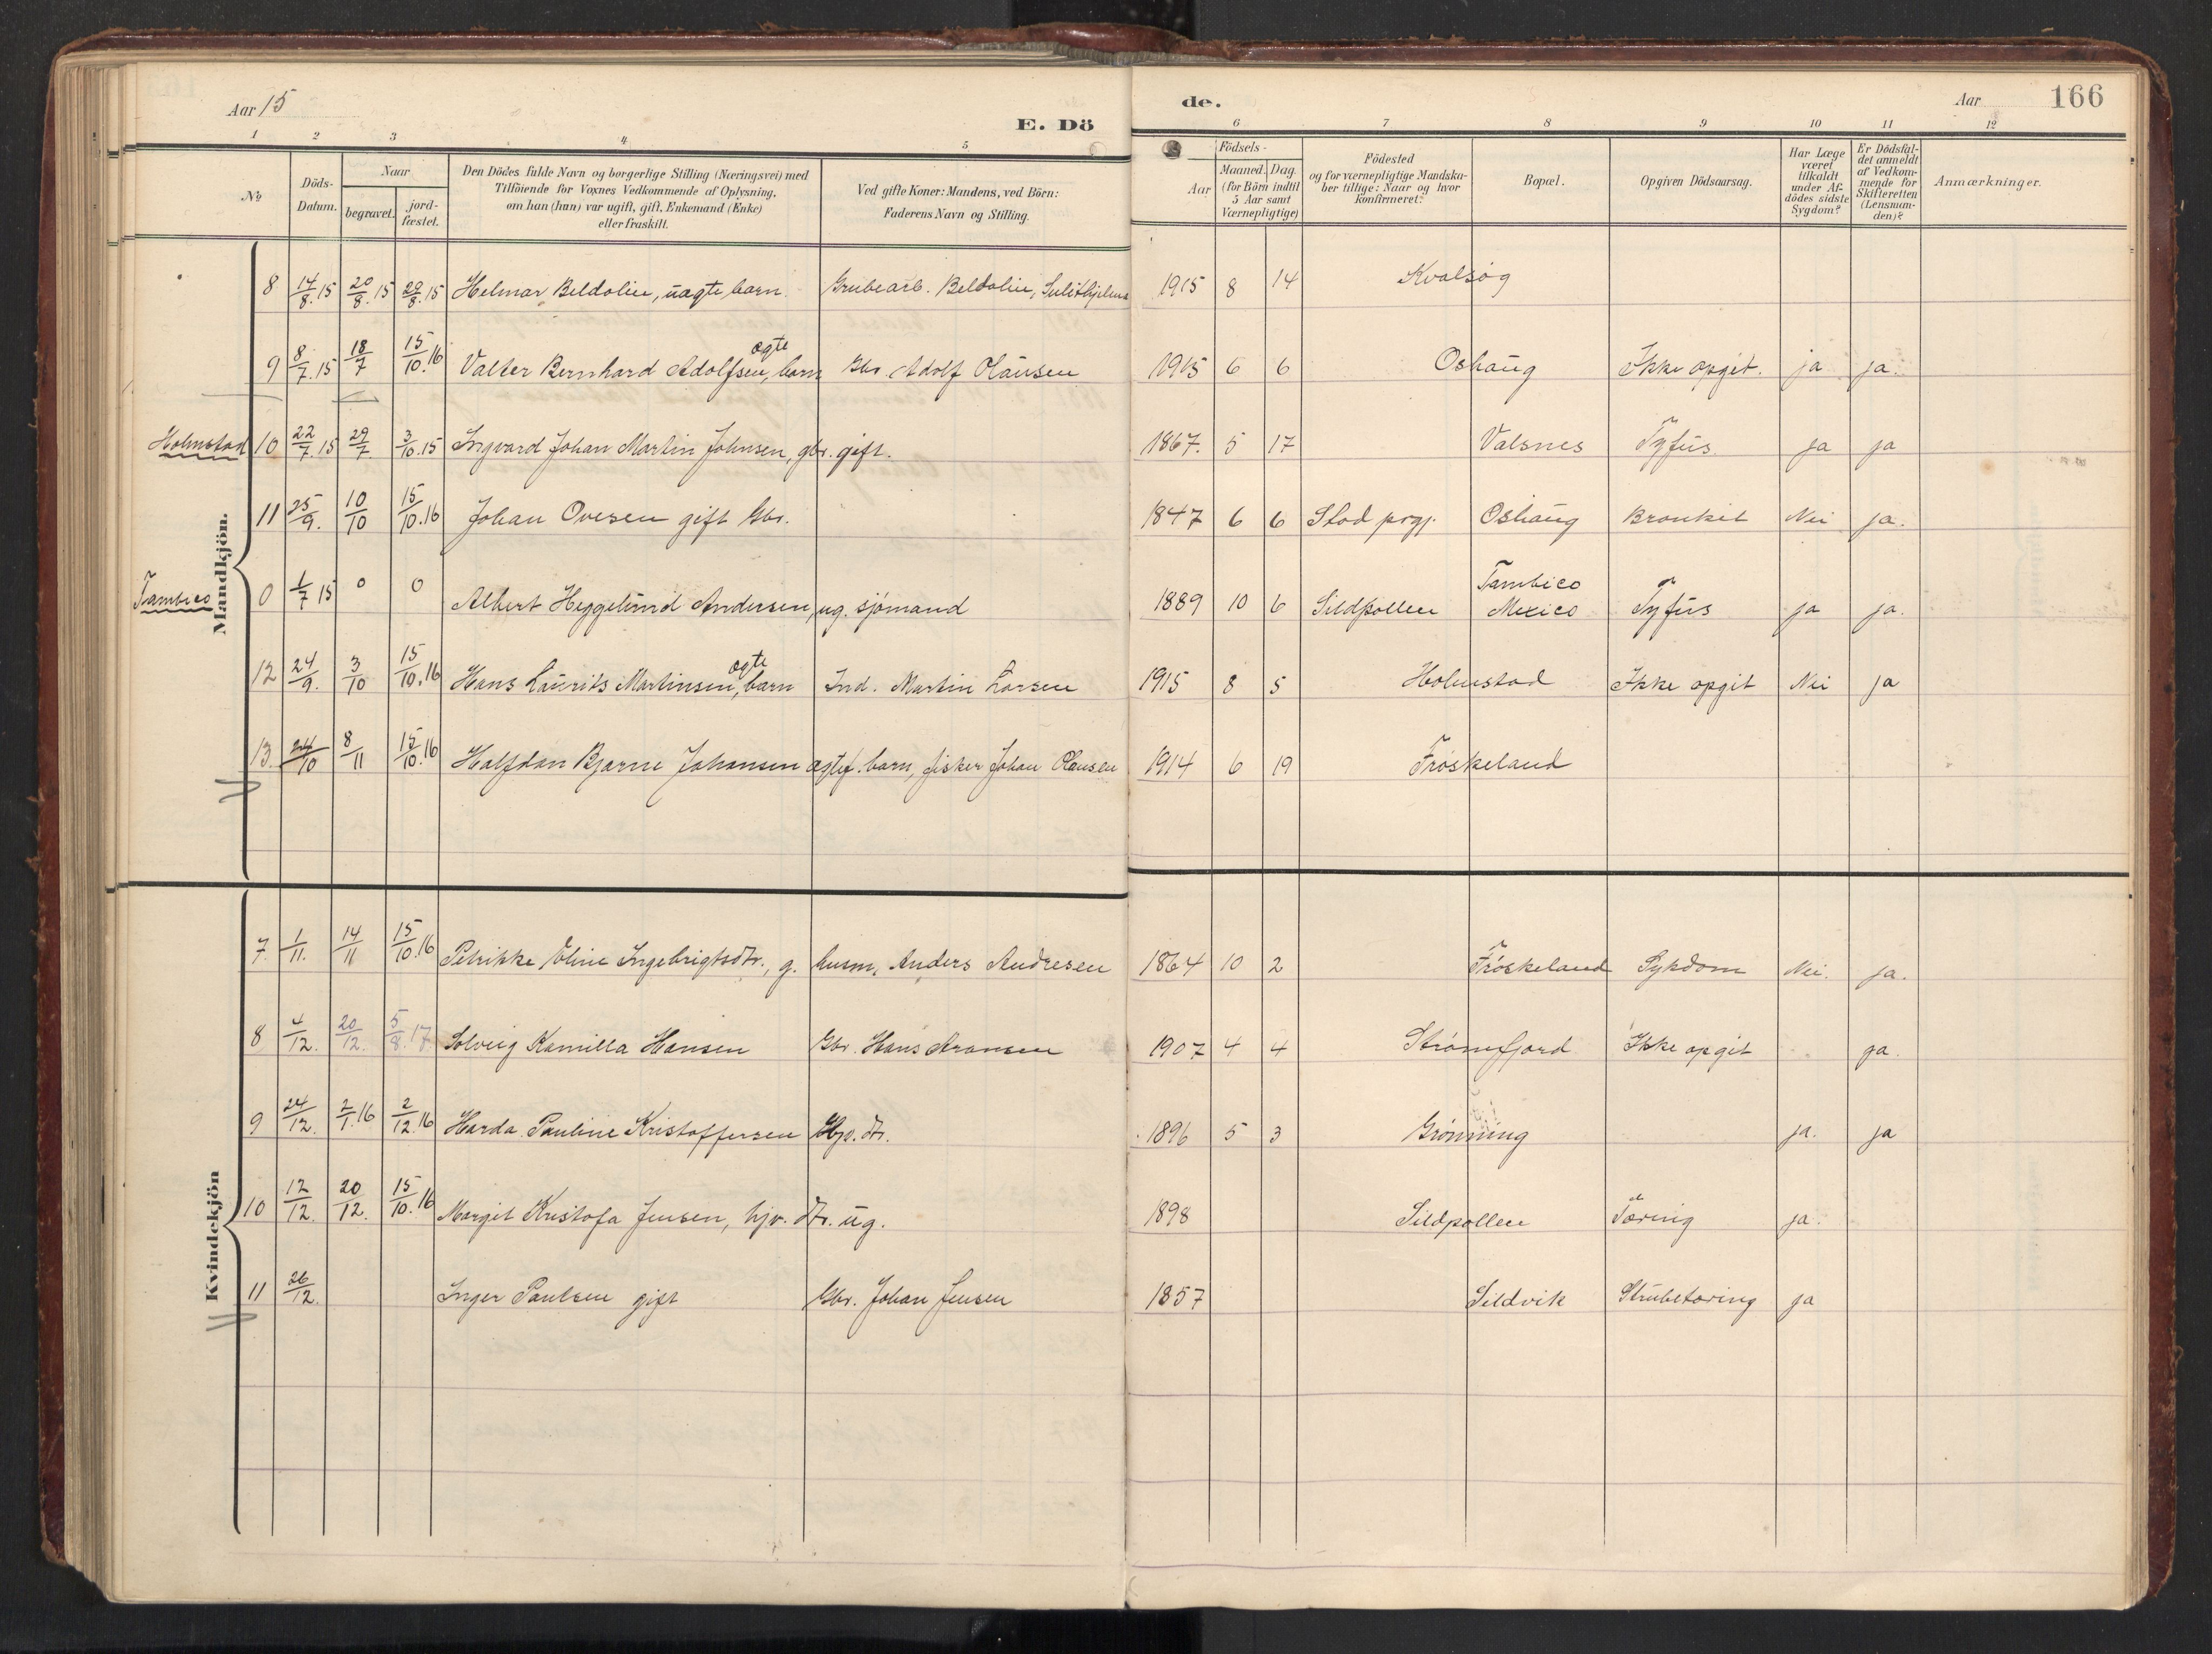 Aar 15
E. Dö
de.
Aar
166
1 2 3 4 5 6 7 8 9 10 11 12
No
Döds-Datum.
Naar
begravet.
jord-fæstet.
Den Dödes fulde Navn og borgerlige Stilling (Næringsvei) med
Tilföiende for Voxnes Vedkommende af Oplysning,
om han (hun) var ugift, gift, Enkemand (Enke)
eller fraskilt.
Ved gifte Koner: Mandens, ved Börn:
Faderens Navn og Stilling.
Födsels-
Aar
Maaned. Dag.
(for Börn indtil
5 Aar samt
Værnepligtige)
Födested
og for værnepligtige Mandska-
ber tillige: Naar og hvor
konfirmeret?
Bopæl.
Opgiven Dödsaarsag.
Har Læge
været
tilkaldt
under Af-
dödes sidste
Sygdom?
Er Dödsfal-
det anmeldt
af Vedkom-
mende for
Skifteretten
(Lensman-
den)?
Anmærkninger.
Mandkjön.
8 14/8.15 20/8.15 20/8.15 Helmar Beldolin, uægte barn. Grubearb. Beldolin, Sulithjelma 1915 8 14 Kvalsøg
9 8/7.15 18/7 15/10.16 Valter Bernhard Adolfsen, ægte barn Gbr. Adolf Olausen 1915 6 6 Oshaug Ikke opgit. ja ja.
Holmstad 10 22/7.15 29/7 3/10.15 Ingvard Johan Martin Johnsen, gbr. gift. 1867. 5 17 Valsnes Tyfus ja ja
11 25/9. 10/10 15/10.16 Johan Ovesen gift Gbr. 1847 6 6 Stod prgj. Oshaug Bronkit Nei ja.
Tambico 0 1/7 15 0 0 Albert Heggelund Andersen, ug. sjømand 1889 10 6 Sildpollen Tambico Mexico Tyfus ja ja.
12 24/9. 3/10 15/10.16 Hans Laurits Martinsen, ægte barn Ind. Martin Larsen 1915 8 5 Holmstad Ikke opgit Nei ja
13. 24/10 8/11 15/10.16 Halfdan Bjarne Johansen ægtef. barn, fisker Johan Olausen 1914 6 19 Frøskeland
Kvindekjön
7. 1/11. 14/11 15/10.16 Petrikke Oline Ingebrigtsdtr., g. husm. Anders Andresen 1864 10 2 Frøskeland Sykdom Nei. ja.
8 4/12. 20/12. 5/8.17 Solveig Kamilla Hansen Gbr. Hans Aronsen 1907 4 4 Strømfjord Ikke opgit ja.
9 24/12. 2/1.16 2/12.16 Harda Pauline Kristoffersen Hjv. dtr. 1896 5 3 Grønning ja. ja
10 12/12. 20/12. 15/10.16 Margit Kristofa Jensen, hjv. dtr. ug. 1898 Sildpollen Tæring ja.
11 26/12. Inger Paulsen gift Gbr. Johan Jensen 1857 Sildvik Strubetæring ja